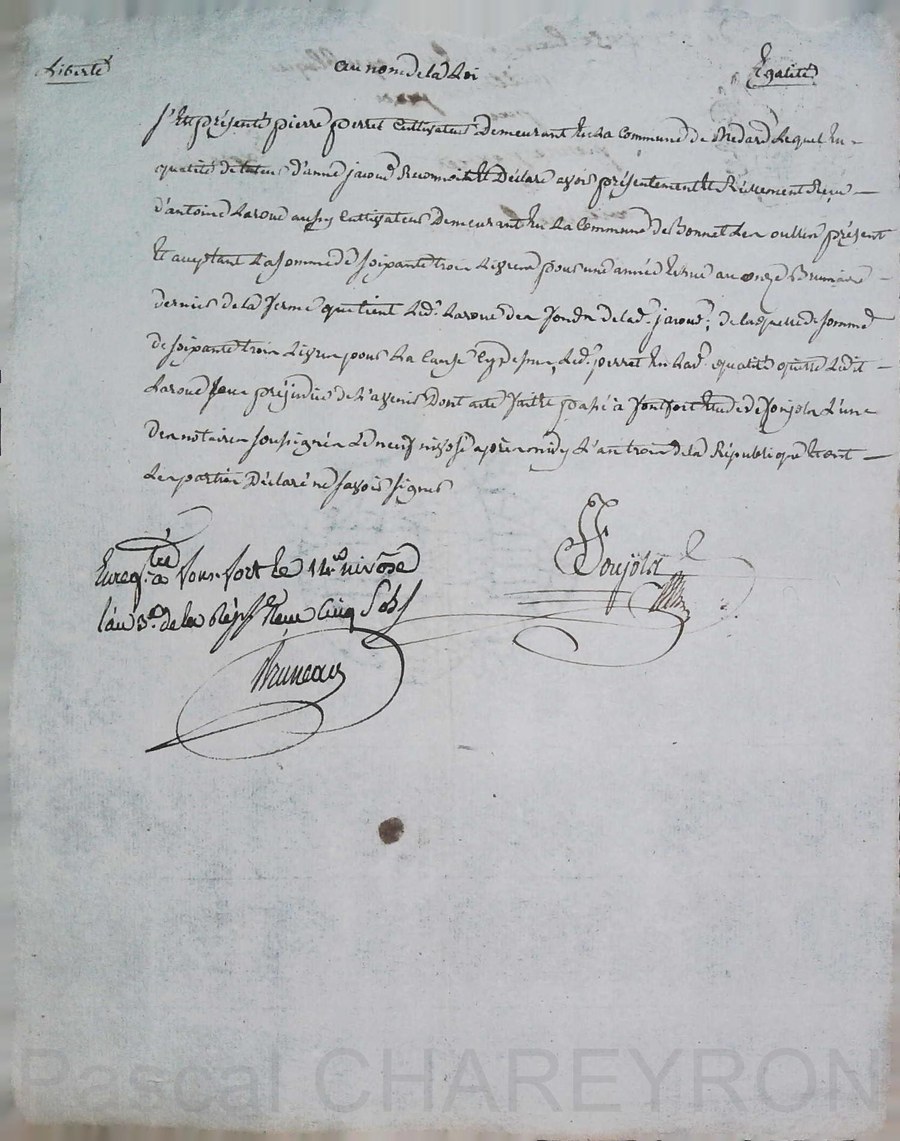 Liberté au nom de la Loi Egalité
S'est présenté pierre perret Cultivateur Demeurant En La Commune de Medard Lequel En
qualité de tuteur d'anne jaroud Reconnoit Et Déclare avoir présentement Et Réellement Reçu
d'antoine Laroue aussy Cultivateur Demeurant En La Commune de Bonnet Les oulles présent
Et aceptant La Somme de Soixante trois Livres pour une année Echue au onze Brumaire
dernier de la ferme que tient Led. Laroue des fonds de lad. jaroud, de laquelle Somme
de Soixante trois Livres pour La Cause Cy dessus, Led. perret En Lad. qualité quitte Ledit
Laroue Sans préjudice de L'avenir Dont acte fait Et passé à fontfort Etude de Soujola L'un
des notaires Soussignés Le neuf nivose après midy L'an trois de la République Et ont
Les parties Déclaré ne Savoir Signer
Soujola
Enreg.tré à fonsfort le 14 nivose
l'an 3.e de la Rép. Reçu Cinq Sols
Bruneau
Pascal CHAREYRON